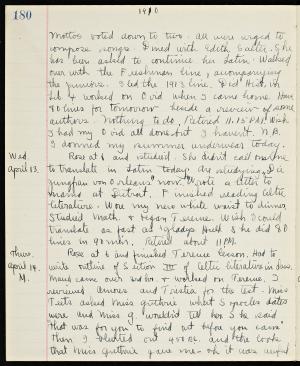 180
1910
mottos voted down to two. All were urged to
compose songs. Dined with Edith Sailer. She
has been asked to continue her Latin. Walked
over with the Freshman line, accompanying
the juniors. I led the 1913 line. Did Hist. in
Lib & worked on Ovid when I came home. Have
80 lines for tomorrow besides a review of some
authors. Nothing to do, Retired 11.15 P.M. Wish
I had my Ovid all done but I haven't. N.B.
I donned my summer underwear today.
Wed.
April 13.
Rose at 6 and studied. She didn't call on me
to translate in Latin today. Are studying Die
Jungfrau von Orleans now. Wrote a letter to
mama at Detroit. Finished reading Celtic
literature. Wore my new white waist to dinner
Studied Math & began Terence. Wish I could
translate as fast as Gladys Huet & she did 80
lines in 90 min. Retired about 11 P.M.
Thurs.
April 14.
M
Rose at 6 and finished Terence lesson. Had to
write outline of Section III of Celtic literature in class.
Maud came over and we worked on Terence. I
reviewed Amores and Tristia for the test. Miss
Teets asked Miss Guthrie what Sp dates
were and Miss G. wouldn't tell her & she said
"That was for you to find out before you came"
Then I blurted out 450 B.C. and the look
that Miss Guthrie gave me- oh it was awful